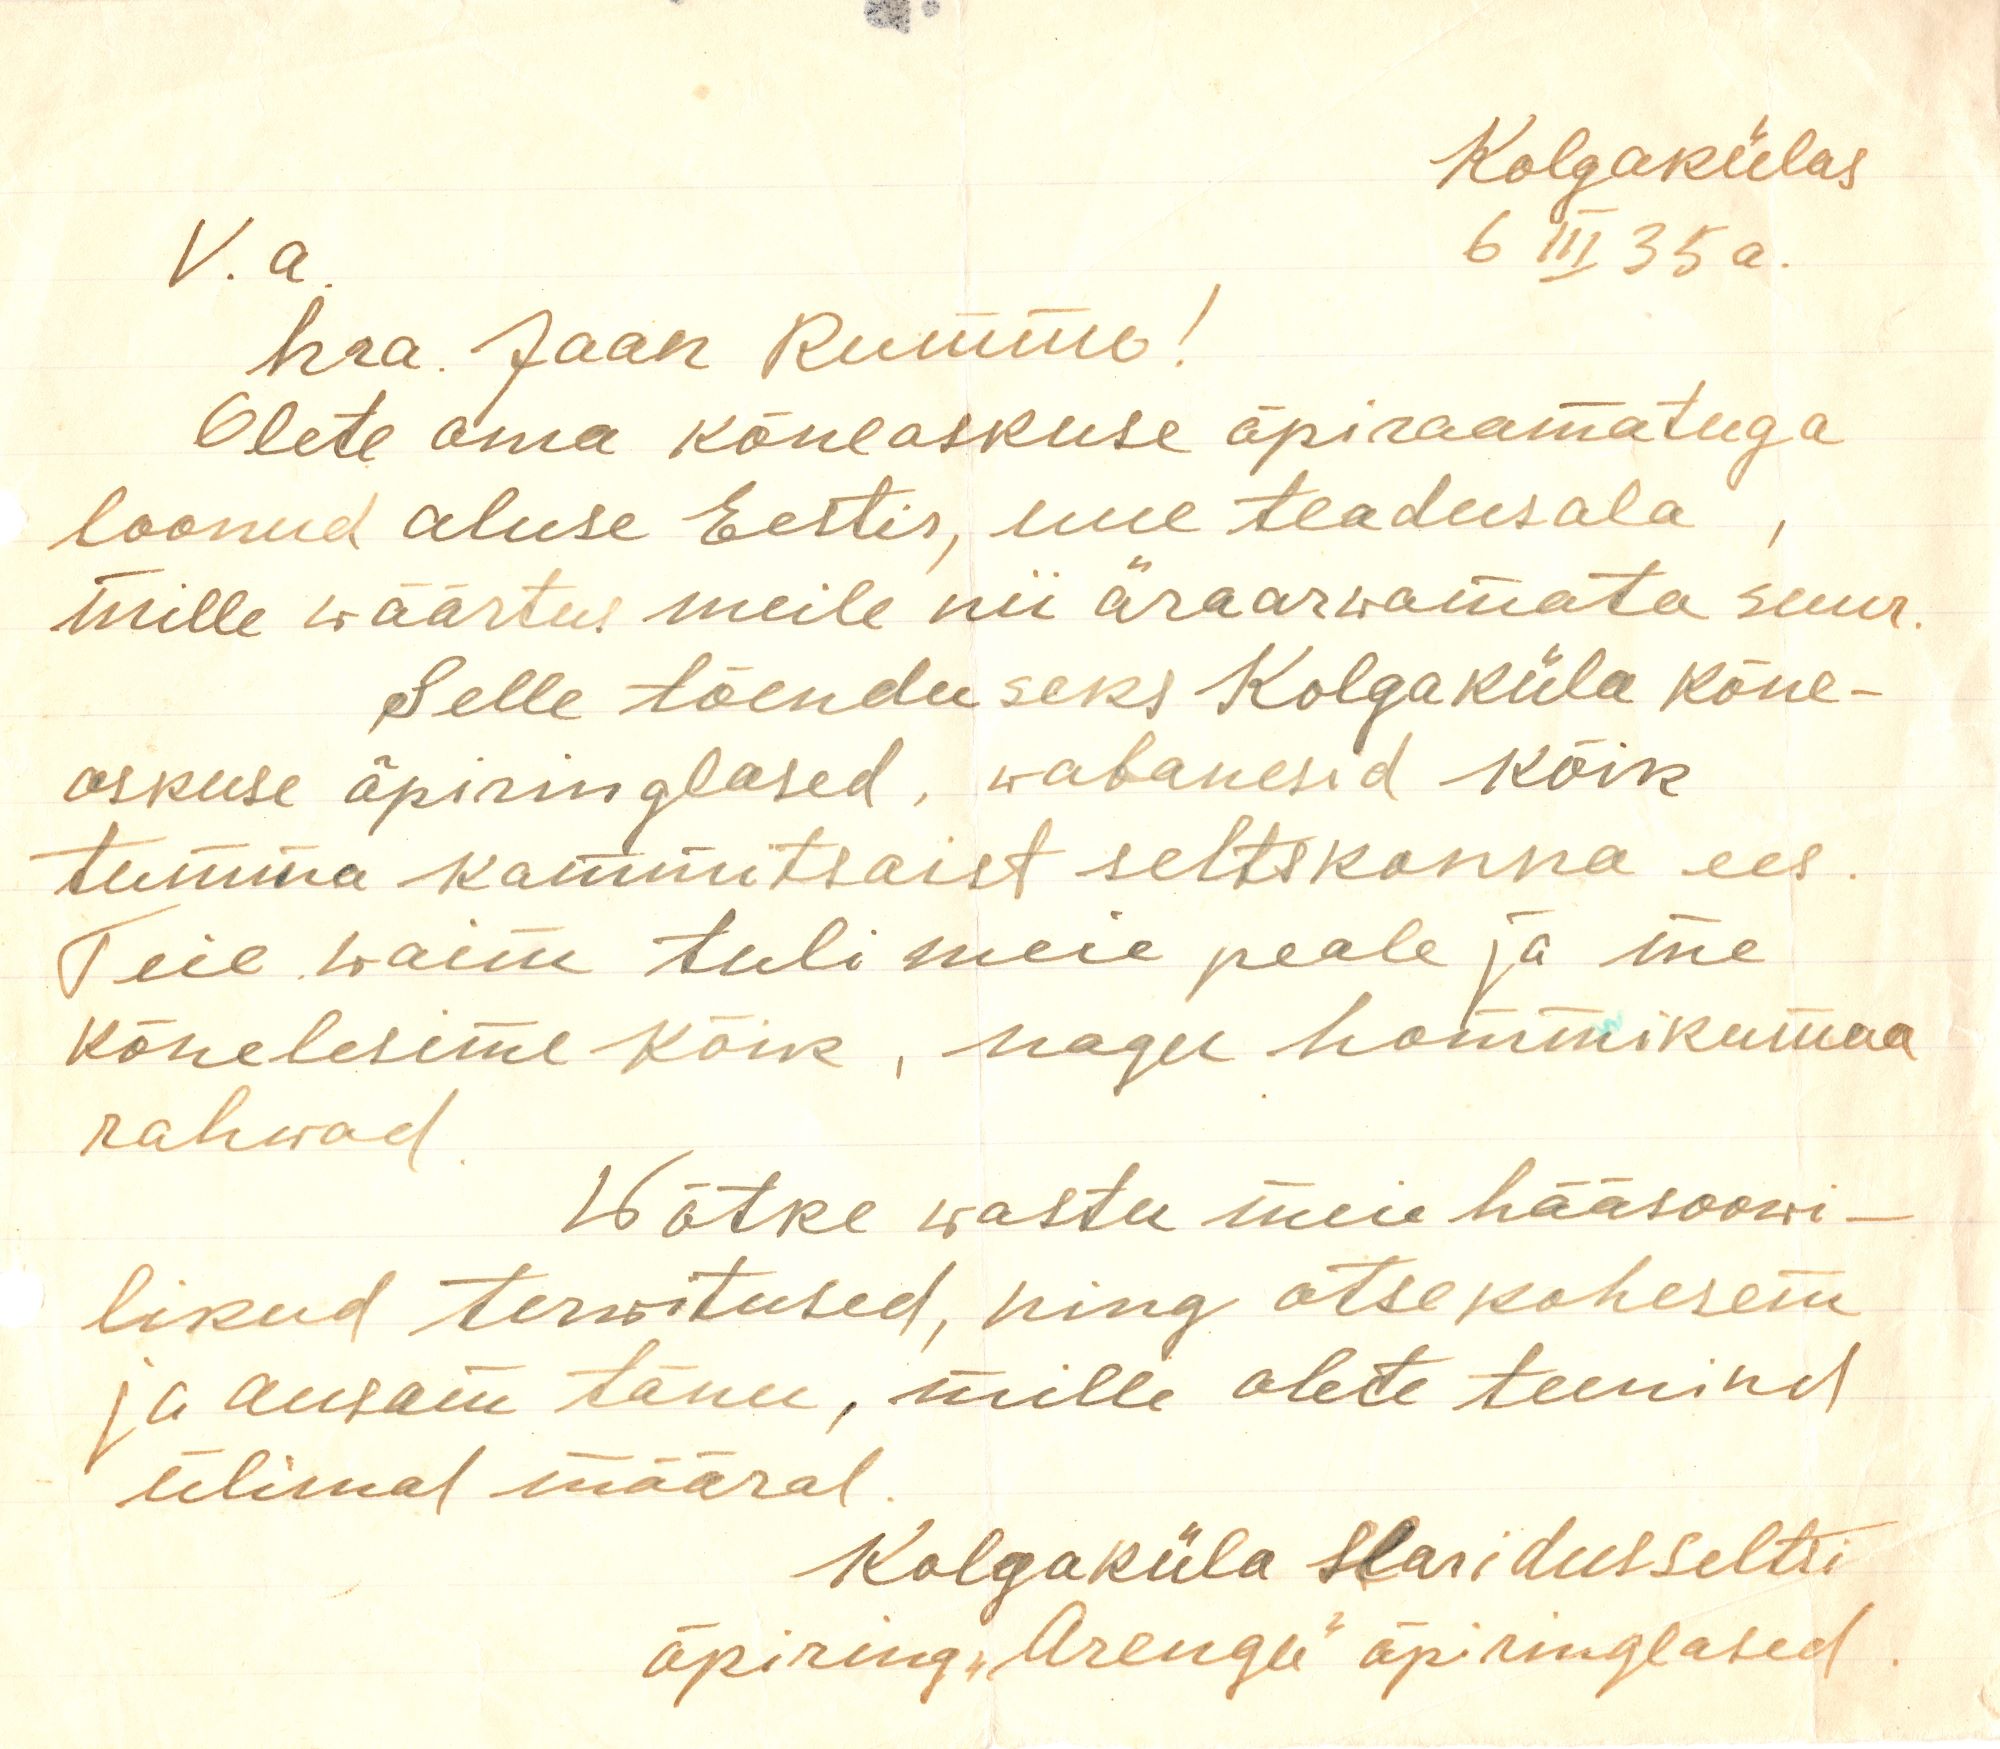 Kolgakülas
6 III 35 a.
V. a.
hra. Jaan Rummo!
Olete oma kõneoskuse õpiraamatuga
loonud aluse Eestis, uue teadusala,
mille wäärtus meile nii äraarwamata suur.
Selle tõenduseks Kolgaküla kõne-
oskuse õpiringlased, wabanesid kõik
tumma kammitsaist seltskonna ees.
Teie waim tuli meie peale ja me
kõnelesime kõik, nagu hommikumaa
rahwad.
Wõtke wastu meie hääsoowi-
likud terwitused, ning otsekohesem
ja ausam tänu, mille olete teenind
ülimal määral.
Kolgaküla Haridusseltsi
õpiring „Arengu" õpiringlased.